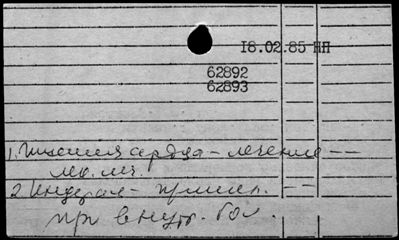 18.02.85 НП
62892
62893
1. Ишемия сердца - лечение --
лек. леч.
2. Индерал - примен. --
при внутр. бол.